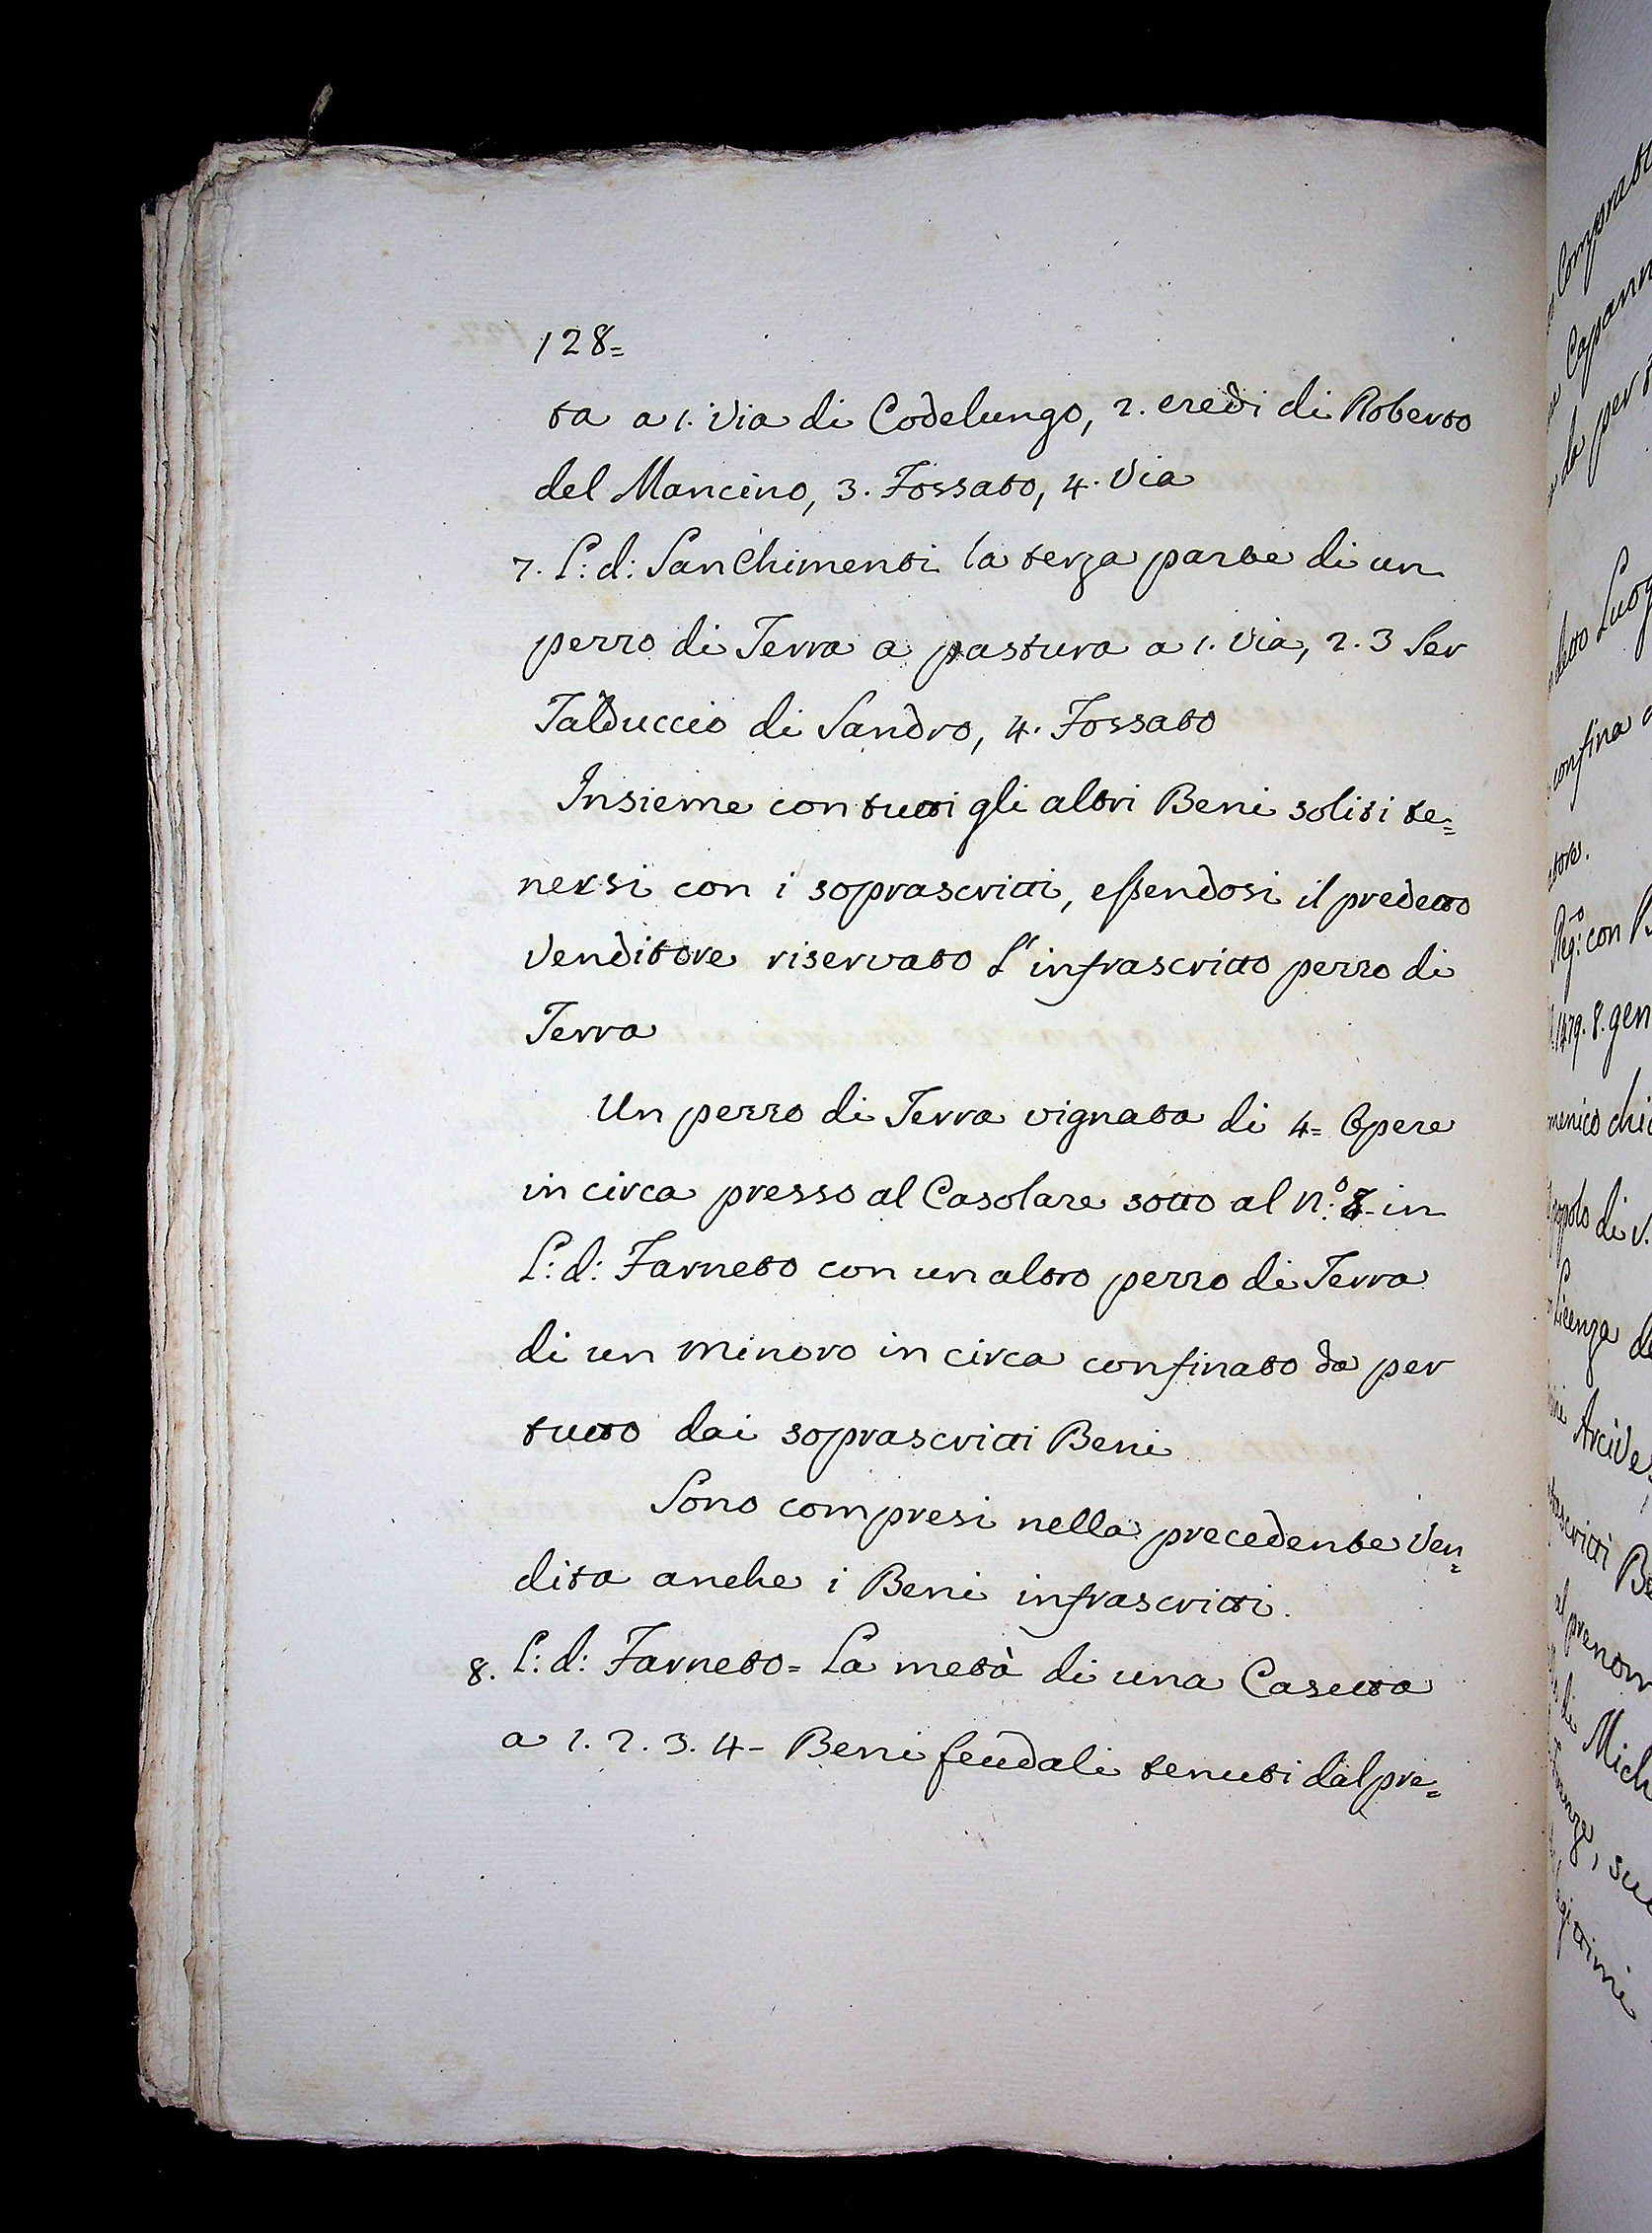 128=
ta a 1. Via di Codelungo, 2. eredi di Roberto
del Mancino, 3. Fossato, 4. Via
7. L: d: San Chimenti la terza parte di un
pezzo di Terra a pastura a 1. Via, 2. 3 Ser
Talduccio di Sandro, 4. Fossato
Insieme con tutti gli altri Beni soliti te=
nersi con i soprascritti, essendosi il predetto
Venditore riservato l'infrascritto pezzo di
Terra
Un pezzo di Terra vignata di 4= Opere
in circa presso al Casolare sotto al n.º in
L: d: Farneto con un altro pezzo di Terra
di un minoro in circa confinato da per
tutto dai soprascritti Beni
Sono compresi nella precedente Ven=
dita anche i Beni infrascritti.
8. L: d: Farneto= La metà di una Casetta
a 1. 2. 3. 4- Beni feudali tenuti dal pre=